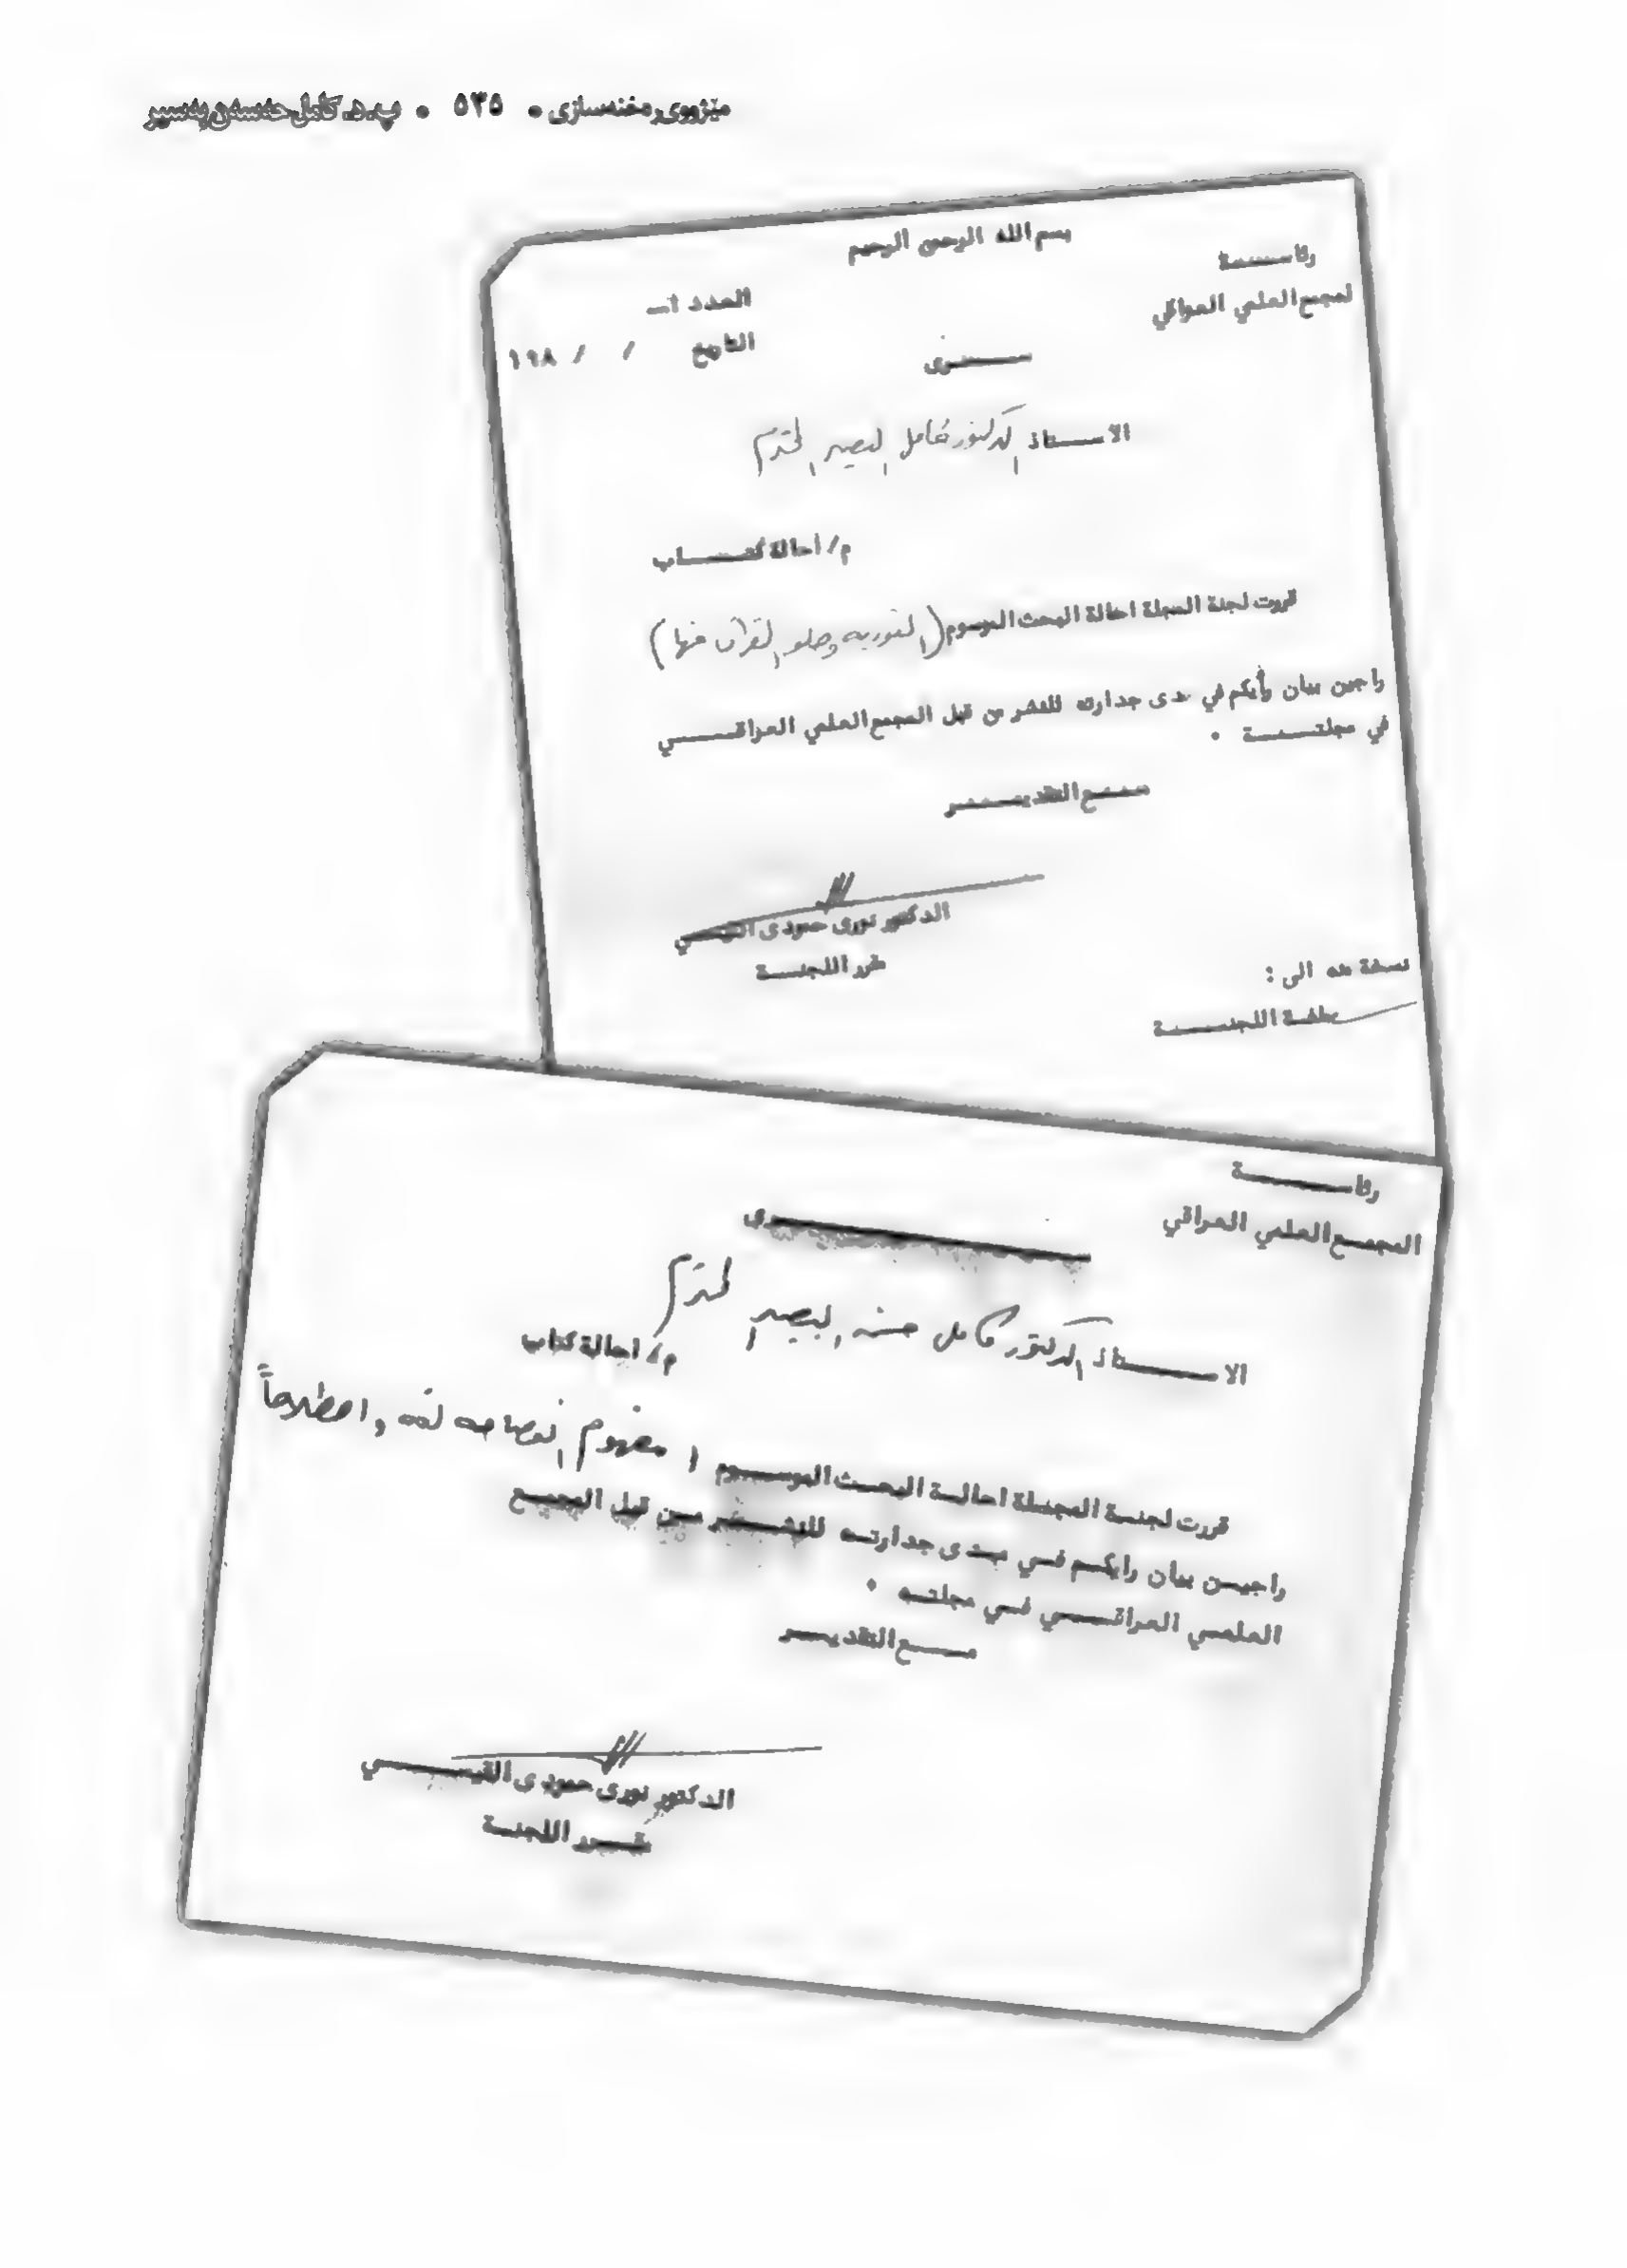 مێژووی رەخنەسازی • ٥٣٥ • پ.د. کامل حەسەن بەسیر
بسم الله الرحمن الرحيم
رئاســـة
لمجمع العلمي العراقي
العدد
التاريخ / / ١٩٨
ســـري
الاستاذ الدكتور كامل البصير المحترم
م/ احالة كتـــاب
قررت لجنة المجلة احالة البحث الموسوم (التورية وخلو القرآن منها)
راجين بيان رأيكم في مدى جدارته للنشر من قبل المجمع العلمي العراقـــي
في مجلتـــه ٠
مـــع التقديـــر
الدكتور نوري حمودي القيســـي
مقرر اللجنـــة
نسخة منه الى :
ملفـة اللجنـــة
رئاســـة
المجمـع العلمي العراقي
ســـري
الاســـتاذ الدكتور كامل حسن البصير المحترم
م/ احالة كتاب
قررت لجنـة المجـلة احالـة البحـث الموسـوم ( مفهوم الفصاحه لغه واصطلاحاً
راجيـن بيان رايكـم فـي مـدى جدارتـه للنشـر مـن قبل المجمـع
العلمـي العراقـي فـي مجلتـه ٠
مـــع التقديـــر
الدكتور نوري حمودي القيســـي
مقـرر اللجنـة